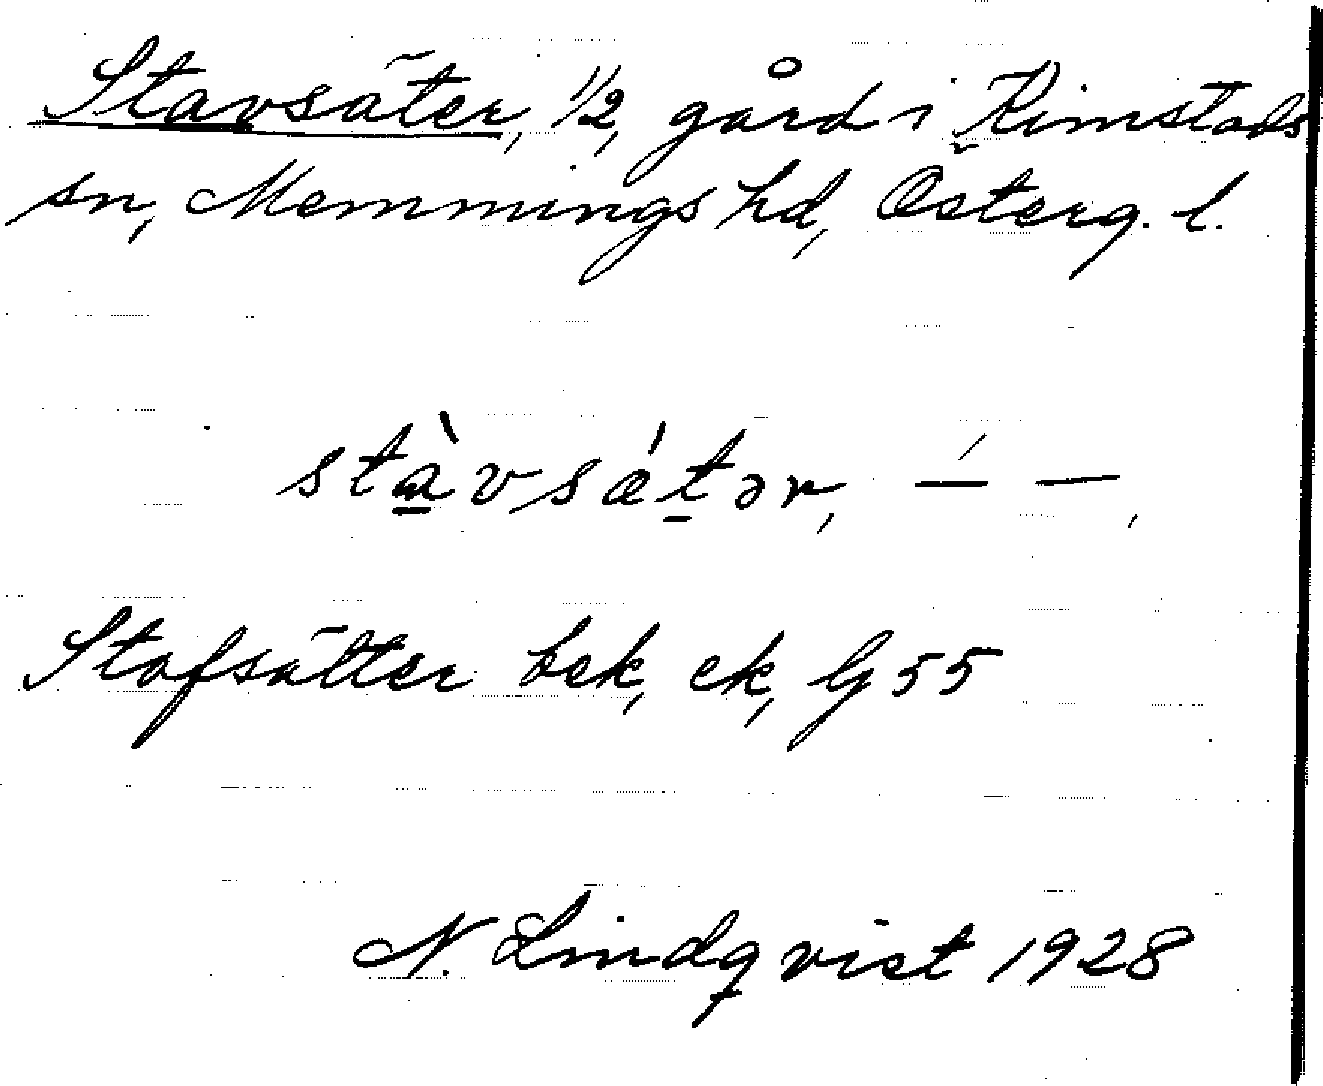 Stavsäter, 1/2, gård i Kimstads
sn, Memmings hd, Österg. l.
stàvsǽtər, –́ –,
Stafsätter bek, ek, G 55
N. Lindqvist 1928